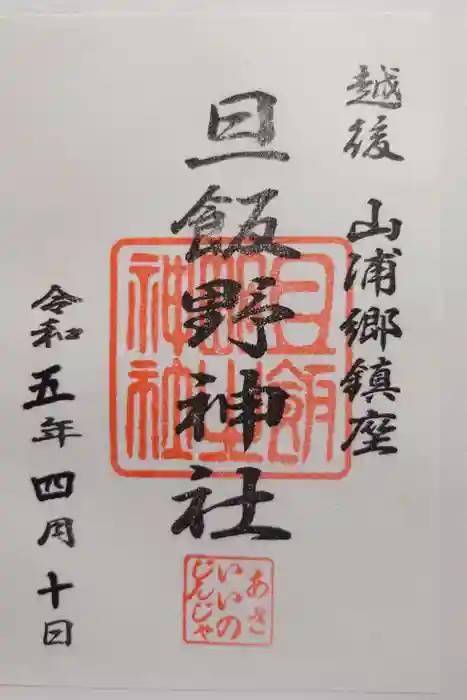 越後 山浦郷鎮座
旦飯野神社
旦飯野神社
あさ
いいの
じんじゃ
令和五年四月十日